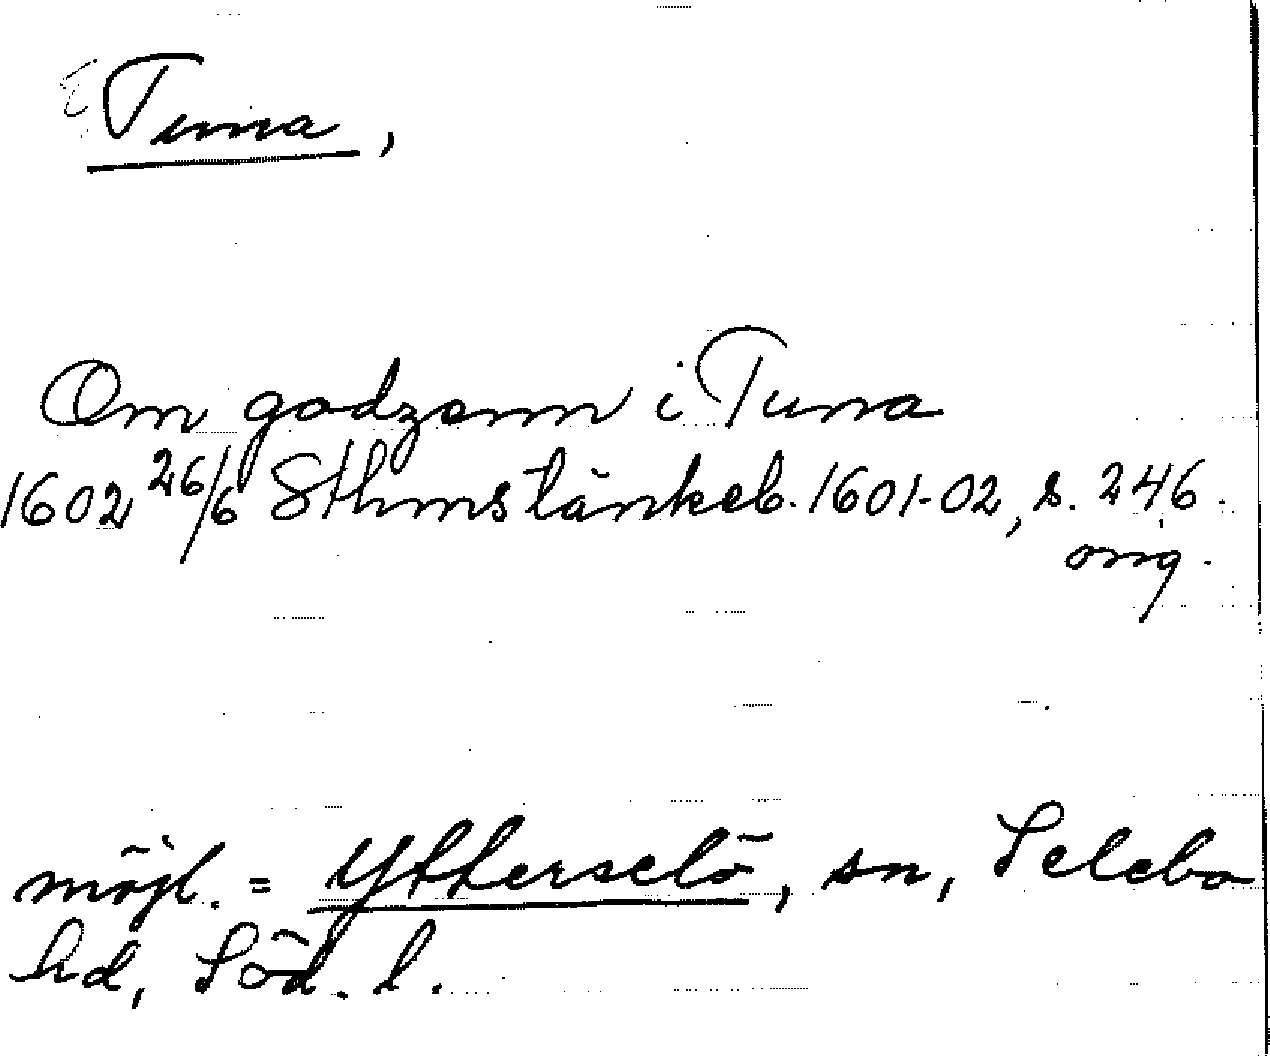 Tuna,
Om godzenn i Tuna
1602 26/6 Sthms tänkeb. 1601-02, s. 246.
orig.
möjl. = Ytterselö, sn, Selebo
hd, Söd. l.